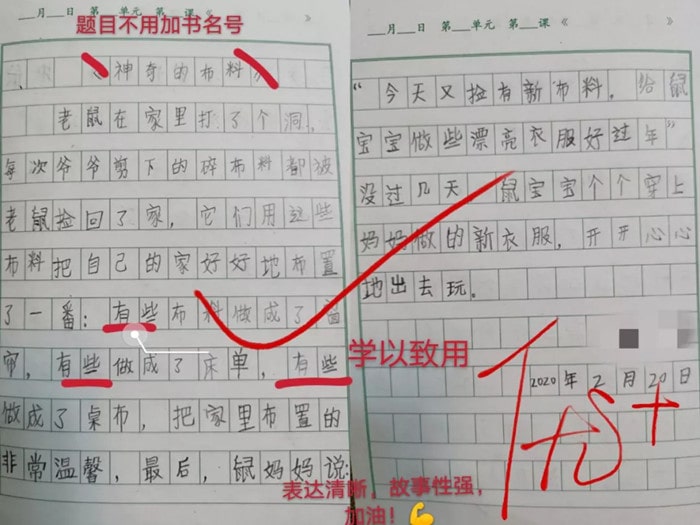 ___月___日 第___单元 第___课《
题目不用加书名号
《神奇的布料》
老鼠在家里打了个洞，
每次爷爷剪下的碎布料都被
老鼠捡回了家，它们用这些
布料把自己的家好好地布置
了一番：有些布料做成了窗
帘，有些做成了床单，有些
做成了桌布，把家里布置的
非常温馨，最后，鼠妈妈说：
___月___日 第___单元 第___课《
“今天又捡有新布料，给鼠
宝宝做些漂亮衣服好过年”
没过几天 鼠宝宝个个穿上
妈妈做的新衣服，开开心心
地出去玩。
学以致用
2020年2月20日
表达清晰，故事性强，
加油！💪